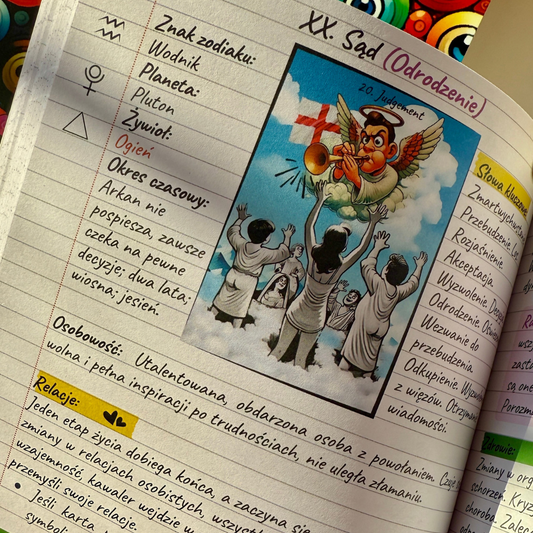 XX. Sąd (Odrodzenie)
Znak zodiaku:
Wodnik
Planeta:
Pluton
Żywioł:
Ogień
Okres czasowy:
Arkan nie
pospiesza, zawsze
czeka na pewne
decyzje; dwa lata;
wiosna; jesień.
20. Judgement
Słowa kluczowe
Zmartwychwstanie
Przebudzenie. Los.
Rozjaśnienie.
Akceptacja
Wyzwolenie.
Odrodzenie.
Wezwanie do
przebudzenia.
Odkupienie.
z więzów.
wiadomości.
Osobowość: Utalentowana, obdarzona osoba z powołaniem.
wolna i pełna inspiracji po trudnościach, nie uległa złamaniu.
Relacje:
Jeden etap życia dobiega końca, a zaczyna się
zmiany w relacjach osobistych,
wzajemność, kawaler wejdzie w
przemyśli swoje relacje.
• Jeśli karta
Zdrowie:
Zmiany w
schorzeń.
choroba.